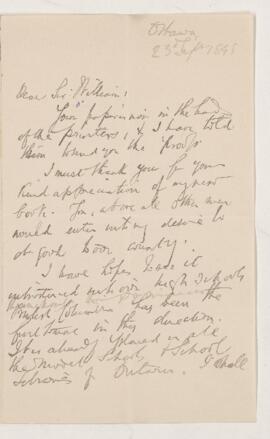 Ottawa
23 Sept 189
Dear Sir William:
Your paper is now in the hands
of the printers, & I have told
them to send you the "proof"
I must thank you for your
kind appreciation of my new
book. You, above all other men
would enter into my desire to
do good to our country.
I have hopes to see it
introduced into our high schools
British Columbia has been the
first to move in this direction.
It is already placed in all
the Model Schools & School
Libraries of Ontario. I shall